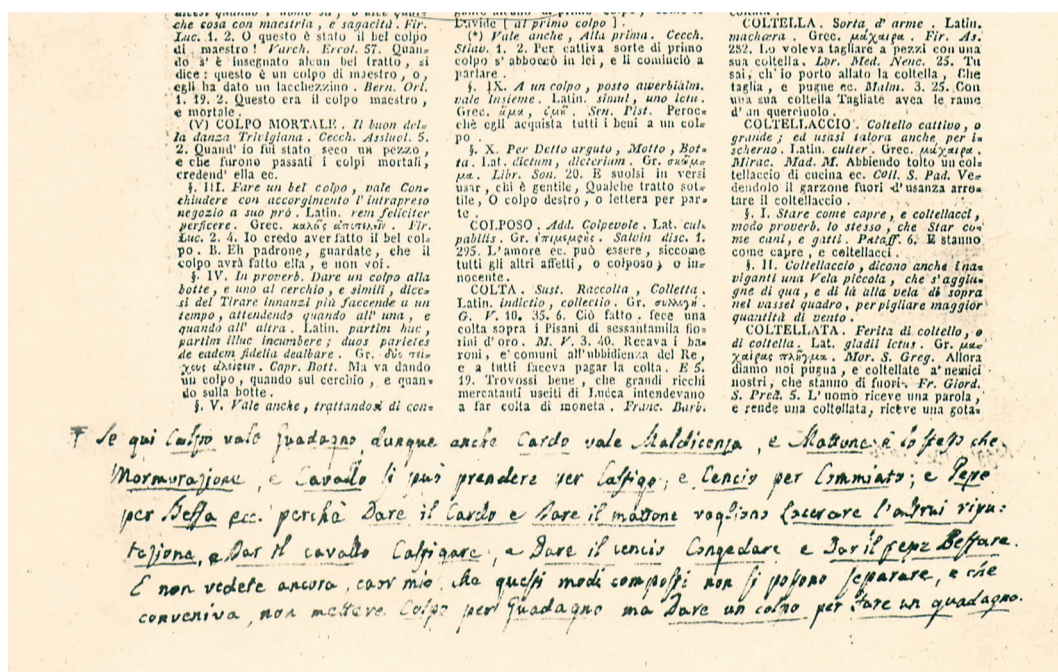 che cosa con maestria, e sagacità. Fir.
Luc. 1. 2. O questo è stato il bel colpo
di maestro! Varch. Ercol. 57. Quan=
do s' è insegnato alcun bel tratto, si
dice: questo è un colpo di maestro, o,
egli ha dato un lacchezzino. Bern. Orl.
1. 19. 2. Questo era il colpo maestro,
e mortale.
(V) COLPO MORTALE. Il buon del=
la danza Trivigiana. Cecch. Assiuol. 5.
2. Quand' io fui stato seco un pezzo,
e che furono passati i colpi mortali,
credend' ella ec.
§. III. Fare un bel colpo, vale Con=
chiudere con accorgimento l'intrapreso
negozio a suo prò. Latin. rem feliciter
perficere. Grec. καλῶς Fir.
Luc. 2. 4. Io credo aver fatto il bel col=
po. B. Eh padrone, guardate, che il
colpo avrà fatto ella, e non voi.
§. IV. In proverb. Dare un colpo alla
botte, e uno al cerchio, e simili, dice=
si del Tirare innanzi più faccende a un
tempo, attendendo quando all' una, e
quando all' altra. Latin. partim huc,
partim illuc incumbere; duos parietes
de eadem fidelia dealbare. Gr. δύο τεί=
χους ἀλείφειν. Capr. Bott. Ma va dando
un colpo, quando sul cerchio, e quan=
do sulla botte.
§. V. Vale anche, trattandosi di con=
Davide [al primo colpo].
(*) Vale anche, Alla prima. Cecch.
Stiav. 1. 2. Per cattiva sorte di primo
colpo s' abboccò in lei, e li cominciò a
parlare.
§. IX. A un colpo, posto avverbialm.
vale Insieme. Latin. simul, uno ictu.
Grec. ἅμα, ὁμῆ. Sen. Pist. Peroc=
chè egli acquista tutti i beni a un col=
po.
§. X. Per Detto arguto, Motto, Bot=
ta. Lat. dictum, dicterium. Gr. σκῶμ=
μα. Libr. Son. 20. E suolsi in versi
usar, chi è gentile, Qualche tratto sot=
tile, O colpo destro, o lettera per par=
te.
COLPOSO. Add. Colpevole. Lat. cul=
pabilis. Gr. ἐπιμεμφής. Salvin disc. 1.
295. L'amore ec. può essere, siccome
tutti gli altri affetti, o colposo, o in=
nocente.
COLTA. Sust. Raccolta, Colletta.
Latin. indictio, collectio. Gr. συλλογή.
G. V. 10. 35. 6. Ciò fatto, fece una
colta sopra i Pisani di sessantamila fio=
rini d'oro. M. V. 3. 40. Recava i ba=
roni, e' comuni all'ubbidienza del Re,
e a tutti faceva pagar la colta. E 5.
19. Trovossi bene, che grandi ricchi
mercatanti usciti di Lucca intendevano
a far colta di moneta. Franc. Barb.
COLTELLA. Sorta d' arme. Latin.
machæra. Grec. μάχαιρα. Fir. As.
282. Lo voleva tagliare a pezzi con una
sua coltella. Lor. Med. Nenc. 25. Tu
sai, ch' io porto allato la coltella, Che
taglia, e pugne ec. Malm. 3. 25. Con
una sua coltella Tagliate avea le rame
d' un querciuolo.
COLTELLACCIO. Coltello cattivo, o
grande; ed usasi talora anche per i=
scherno. Latin. culter. Grec. μάχαιρα.
Mirac. Mad. M. Abbiendo tolto un col=
tellaccio di cucina ec. Coll. S. Pad. Ve=
dendolo il garzone fuori d'usanza arro=
tare il coltellaccio.
§. I. Stare come capre, e coltellacci,
modo proverb. lo stesso, che Star co=
me cani, e gatti. Pataff. 6. E stanno
come capre, e coltellacci.
§. II. Coltellaccio, dicono anche i na=
viganti una Vela piccola, che s'aggiu=
gne di qua, e di là alla vela di sopra
nel vassel quadro, per pigliare maggior
quantità di vento.
COLTELLATA. Ferita di coltello, o
di coltella. Lat. gladii ictus. Gr. μα=
χαίρας πλῆγμα. Mor. S. Greg. Allora
diamo noi pugna, e coltellate a' nemici
nostri, che stanno di fuori. Fr. Giord.
S. Pred. 5. L' uomo riceve una parola,
e rende una coltellata, riceve una gota=
† Se qui Colpo vale Guadagno dunque anche Cardo vale Maldicenza, e Mattone è lo stesso che
Mormorazione, e Cavallo si può prendere per Castigo; e Cencio per Commiato; e Pepe
per Beffa ecc. perchè Dare il Cardo e Dare il mattone vagliono Lacerare l'altrui ripu:
tazione, e Dar il cavallo Castigare, e Dare il cencio Congedare e Dar il pepe Beffare.
E non vedete ancora, cari miei che questi modi composti non si possono separare, e che
conveniva, non mettere Colpo per Guadagno ma Dare un colpo per Fare un guadagno.